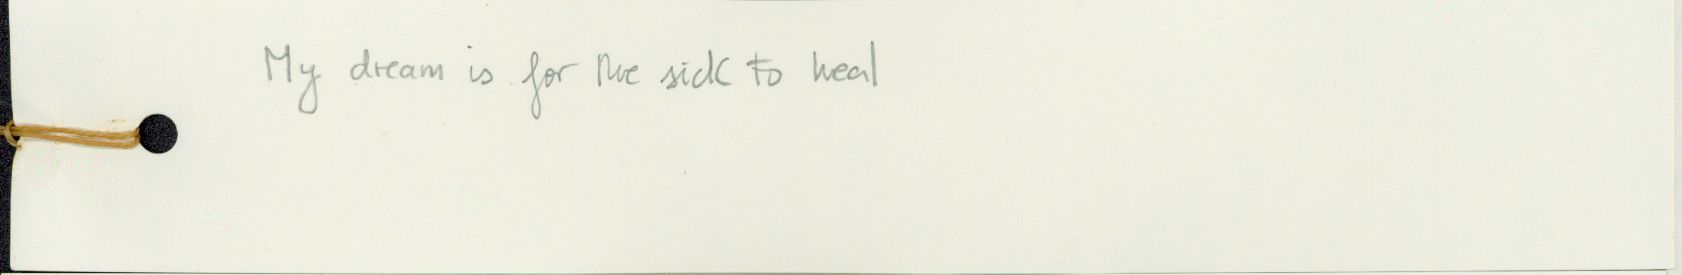 My dream is for the sick to heal